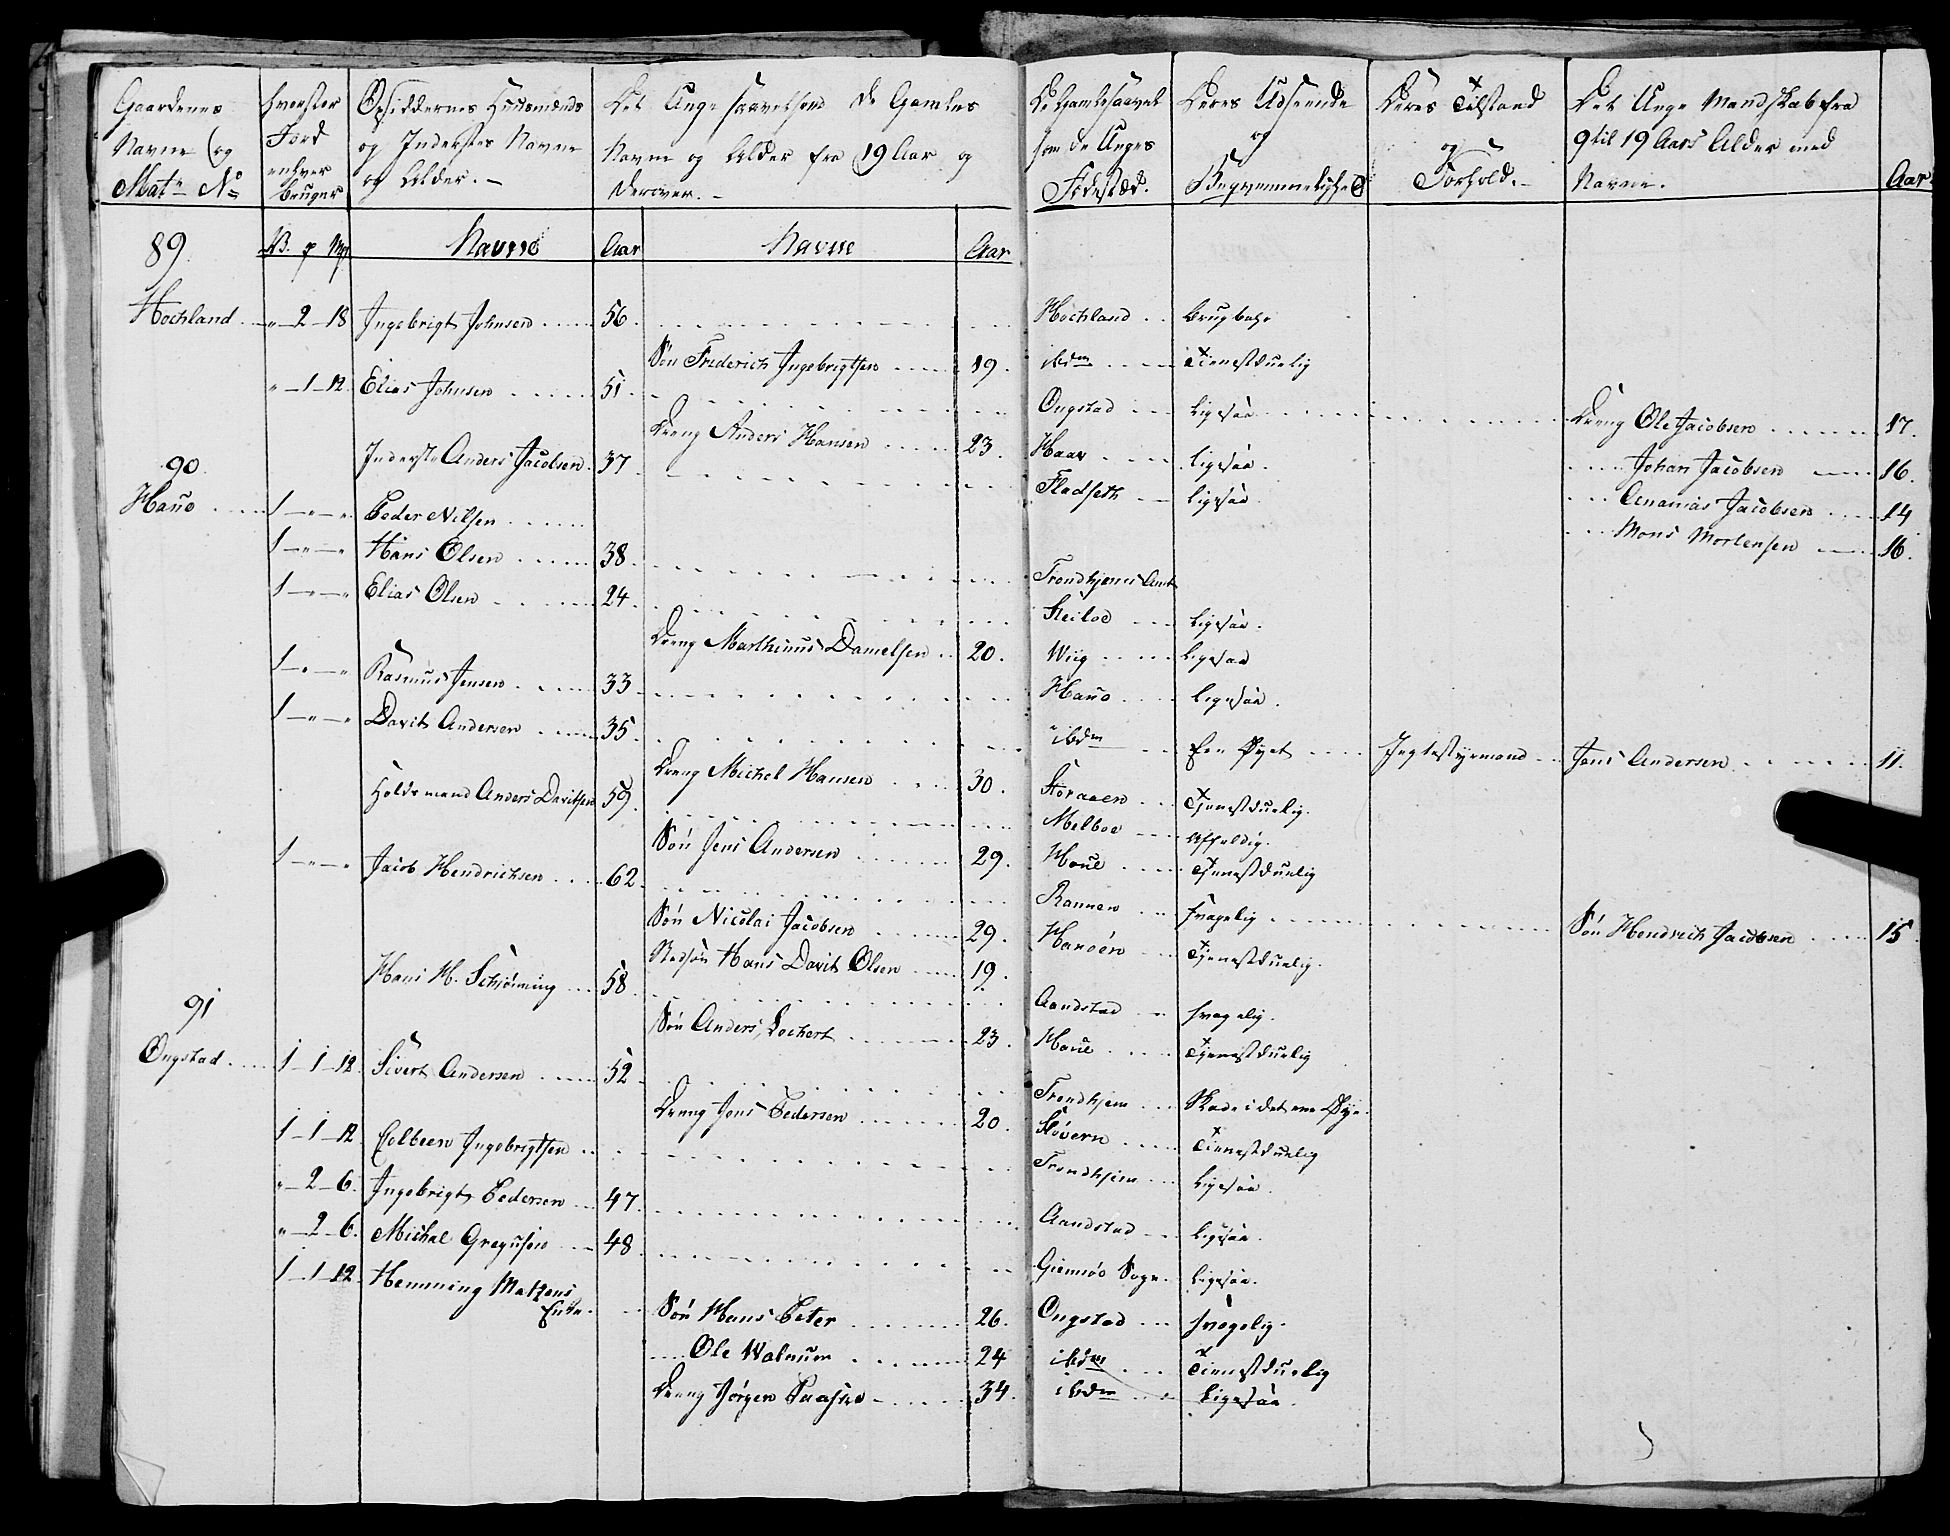 Gaardenes Navne og Mat: No
hvorster Jord enhver bruger
Opsiddernes Huusmænds og Inderstes Navne og Alder.
Det Unge saavelsom De Gamles Navne og Alder fra 19 Aar og derover.
De Gamle saavel som de Unges Fødestæd.
Deres Udseende og Beqvemmelighed
Deres Tilstand og Forhold.
Det Unge Mandskab fra 9 til 19 Aars Alder med Navne.
Aar
89 Navne Aar Navne Aar
Hochland " 2 18 Ingebrigt Johnsen 56 Hochland brugbahr
Søn Friderich Ingebrigtsen 19 ibdm Tienestduelig
" 1 12 Elias Johnsen 51 Ongstad ligesaa Dreng Ole Jacobsen 17.
Dreng Anders Hansen 23 Haav ligesaa Johan Jacobsen 16.
Inderste Anders Jacobsen 37 Fladseth ligesaa Ananias Jacobsen 14
90 Mons Mortensen 16.
Hauo 1 " " Peder Nilsen
1 " " Hans Olsen 38 Trondhjems Amt
1 " " Elias Olsen 24 Steiloe ligesaa
Dreng Marthinus Danielsen 20 Wiig ligesaa
1 " " Rasmus Jensen 33 Hauo ligesaa
1 " " Davit Andersen 35 ibdm Een Øyet Jegtestyrmand Jens Andersen 11.
Dreng Michel Hansen 30 Tjenestduelig
Holdsmand Anders Davitsen 59 Melboe Affeldig
Søn Jens Andersen 29 Haue Tjenestduelig
1 " " Jacob Hendrichsen 62 Rannen svagelig Søn Hendrich Jacobsen 15
Søn Nicolai Jacobsen 29 Hanøen Tjenestduelig
Stedsøn Hans Davit Olsen 19
Hans H. Schiønning 58 Aandstad svagelig
Søn Anders Lochert 23 Haue Tjenestduelig
91
Ongstad 1 1 12 Sivert Andersen 52 Trondhjem Skade i det ene Øye
Dreng Jens Pedersen 20 Støvern Tienestduelig
1 1 12 Colbeen Ingebrigtsen Trondhjem ligesaa
" 2 6 Ingebrigt Pedersen 47 Aandstad ligesaa
" 2 6 Michal Gregusen 48 Giemsøe Sogn ligesaa
1 1 12 Hemming Matzens Enke
Søn Hans Peter 26 Ongstad svagelig
Ole Walnum 24 ibdm Tienestduelig
Dreng Jørgen 34 ibdm ligesaa